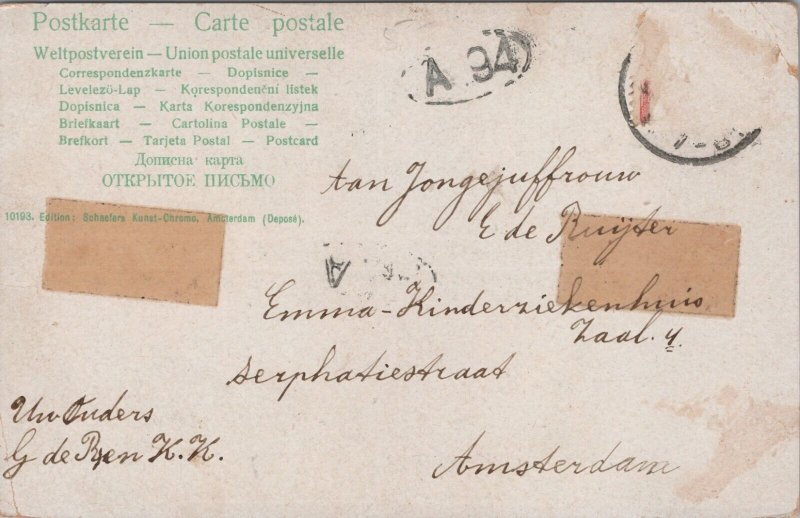 Postkarte — Carte postale
Weltpostverein — Union postale universelle
Correspondenzkarte — Dopisnice —
Levelezö-Lap — Korespondenční listek
Dopisnica — Karta Korespondenzyjna
Briefkaart — Cartolina Postale —
Brefkort — Tarjeta Postal — Postcard
Дописна карта
ОТКРЫТОЕ ПИСЬМО
10193. Edition: Schaefers Kunst-Chromo, Amsterdam (Deposé).
A 94
7-8
Aan Jongejuffrouw
E de Ruijter
A
Emma-Kinderziekenhuis
Zaal. 4.
Serphatiestraat
Uw Ouders
G de R en K.K.
Amsterdam